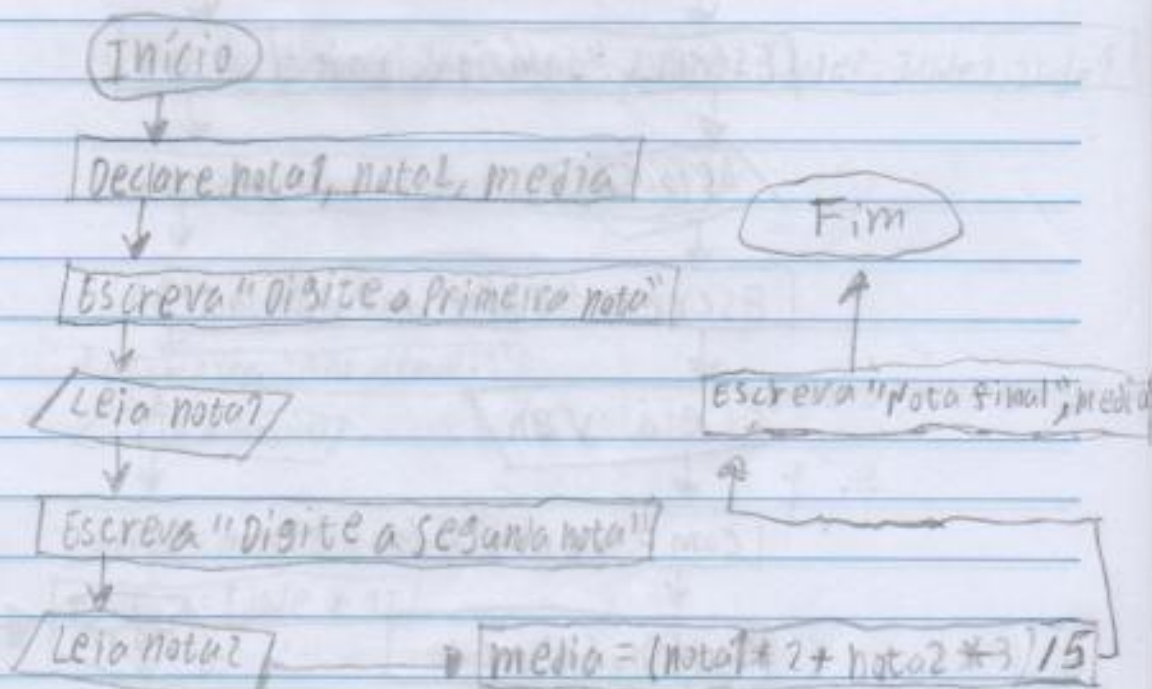 Início
Declare nota1, nota2, media
Escreva "Digite a Primeira nota"
Leia nota1
Escreva "Digite a segunda nota"
Leia nota2
media = (nota1 * 2 + nota2 * 3) / 5
Escreva "Nota final", media
Fim